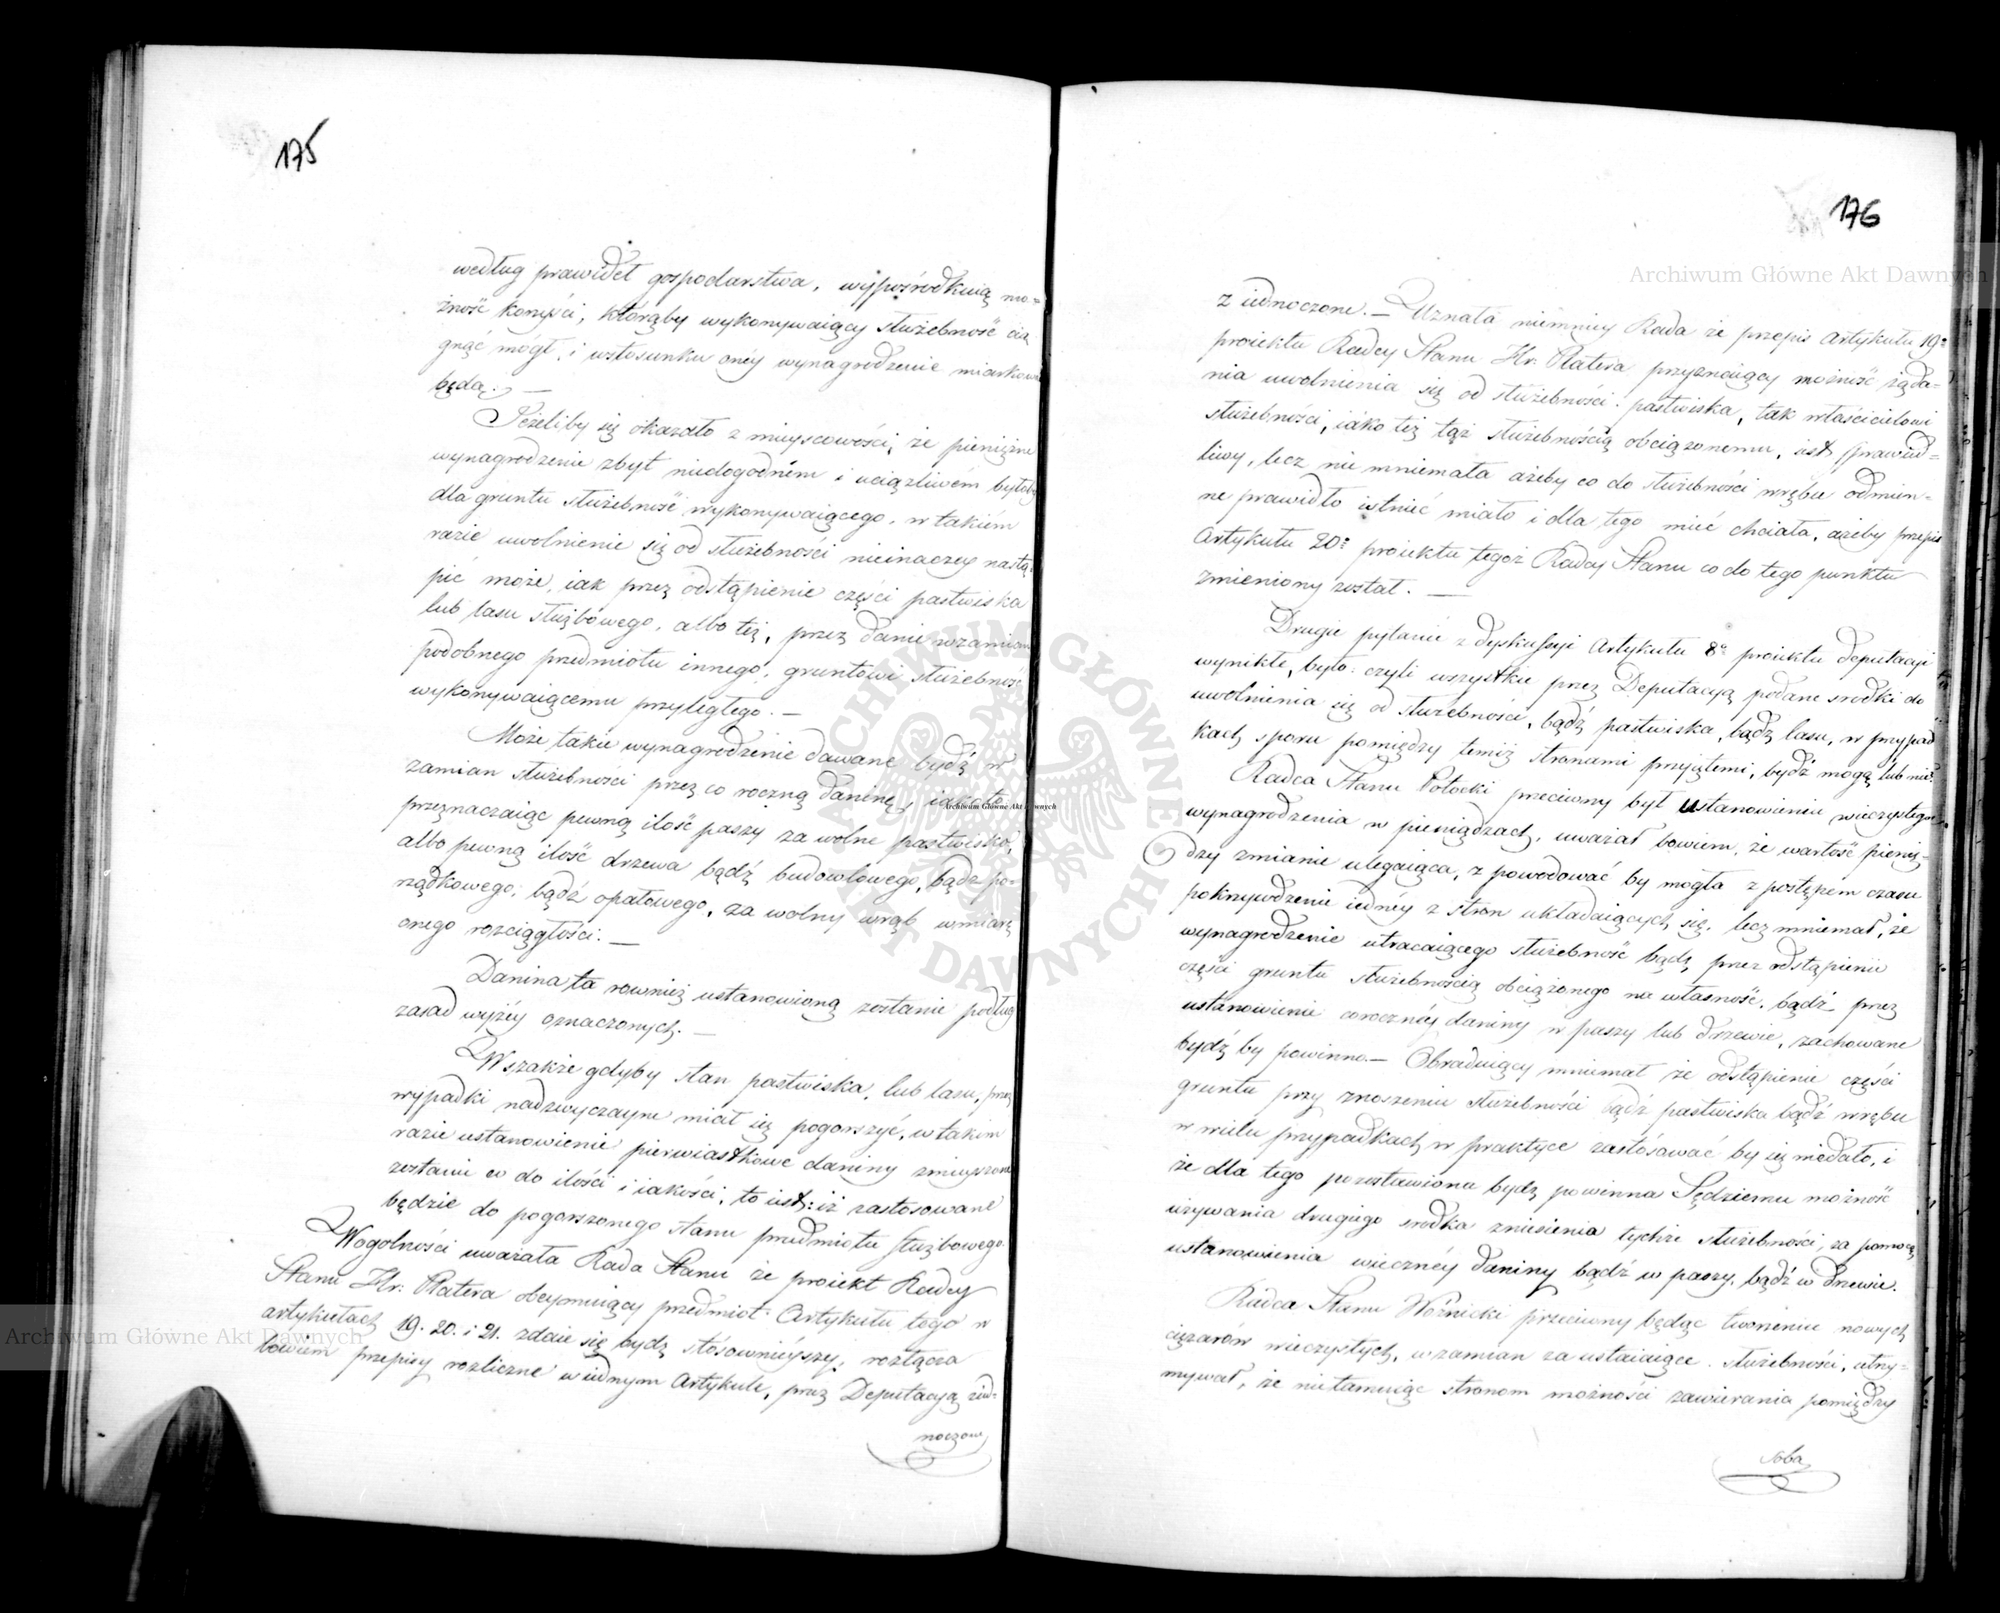 175
według prawideł gospodarstwa, wypośrodkuią mo-
żność korzyści, którąby wykonywaiący służebność cią
gnąć mógł, i wstosunku onéy wynagrodzenie miarkować
będą. —
Jeżeliby się okazało z mieyscowości, że pieniężne
wynagrodzenie zbyt niedogodném i uciążliwém byłoby
dla gruntu służebność wykonywaiącego, w takiém
razie uwolnienie się od służebności nieinaczey nastą
pić może, iak przez odstąpienie części pastwiska
lub lasu służbowego, albo też, przez danie wzamian
podobnego przedmiotu innego, gruntowi służebność
wykonywaiącemu przyległego. —
Może takie wynagrodzenie dawane bydź w
zamian służebności przez co roczną daninę, iako to
przeznaczaiąc pewną ilość paszy za wolne pastwisko,
albo pewną ilość drzewa bądź budowlowego, bądź po-
rządkowego, bądź opałowego, za wolny wrąb wmiarę
onego rozciągłości. —
Danina ta rownież ustanowioną zostanie podług
zasad wyżéy oznaczonych. —
Wszakże gdyby stan pastwiska, lub lasu, przez
wypadki nadzwyczayne miał się pogorszyć, w takim
razie ustanowienie pierwiastkowe daniny zmieyszone
zostanie co do ilości i iakości, to iest: iż zastosowane
będzie do pogorszonego stanu przedmiotu służbowego.
Wogolności uważała Rada Stanu że proiekt Radcy
Stanu Hr: Platera obeymuiący przedmiot Artykułu tego w
artykułach 19. 20. i 21. zdaie się bydź stósownieyszy, rozłącza
bowiem przepisy rozliczne w iednym Artykule, przez Deputacyą zied-
noczone
176
ziednoczone. — Uznała niemniey Rada że przepis Artykułu 19º
proiektu Radcy Stanu Hr: Platera przyznaiący możność żąda-
nia uwolnienia się od służebności pastwiska, tak właścicielowi
służebności, iako też tąż służebnością obciążonemu, iest sprawied-
liwy, lecz nie mniemała ażeby co do służebności wrębu odmien-
ne prawidło istnieć miało i dla tego mieć chciała, ażeby przepis
Artykułu 20º proiektu tegoż Radcy Stanu co do tego punktu
zmieniony został. —
Drugie pytanie z dyskussyi Artykułu 8º proiektu Deputacyi
wynikłe, było: czyli wszystkie przez Deputacyą podane srodki do
uwolnienia się od służebności, bądź pastwiska, bądź lasu, w przypad
kach sporu pomiędzy temiż stronami przyiętemi, bydź mogą lub nie?
Radca Stanu Potocki przeciwny był ustanowieniu wieczystego
wynagrodzenia w pieniądzach, uważał bowiem, że wartość pienię-
dzy zmianie ulegaiąca, spowodować by mogła z postępem czasu
pokrzywdzenie iednéy z stron układaiących się, lecz mniemał, że
wynagrodzenie utracaiącego służebność bądź przez odstąpienie
części gruntu służebnością obciążonego na własność, bądź przez
ustanowienie corocznéy daniny w paszy lub drzewie, zachowane
bydź by powinno. — Obraduiący mniemał że odstąpienie części
gruntu przy znoszeniu służebności bądź pastwiska bądź wrębu
w wielu przypadkach w praktyce zastósować by się niedało, i
że dla tego pozostawiona bydź powinna Sędziemu możność
używania drugiego srodka zniesienia tychże służebności, za pomocą
ustanowienia wiecznéy daniny bądź w paszy, bądź w drzewie.
Radca Stanu Woźnicki przeciwny będąc tworzeniu nowych
ciężarów wieczystych, wzamian za ustaiaiące służebności, utrzy-
mywał, że nietamuiąc stronom możności zawierania pomiędzy
soba
Archiwum Główne Akt Dawnych
Archiwum Główne Akt Dawnych
Archiwum Główne Akt Dawnych
ARCHIWUM GŁÓWNE AKT DAWNYCH